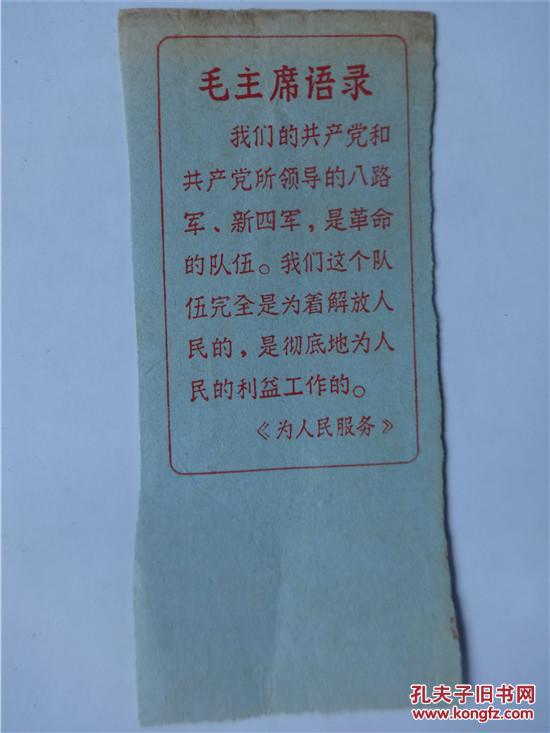 毛主席语录
我们的共产党和
共产党所领导的八路
军、新四军，是革命
的队伍。我们这个队
伍完全是为着解放人
民的，是彻底地为人
民的利益工作的。
《为人民服务》
孔夫子旧书网
www.kongfz.com